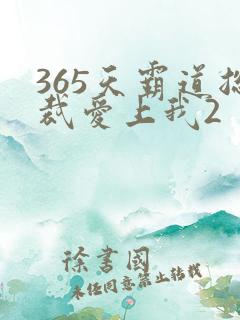 365天霸道总
裁爱上我2
徐书国
未经同意禁止转载